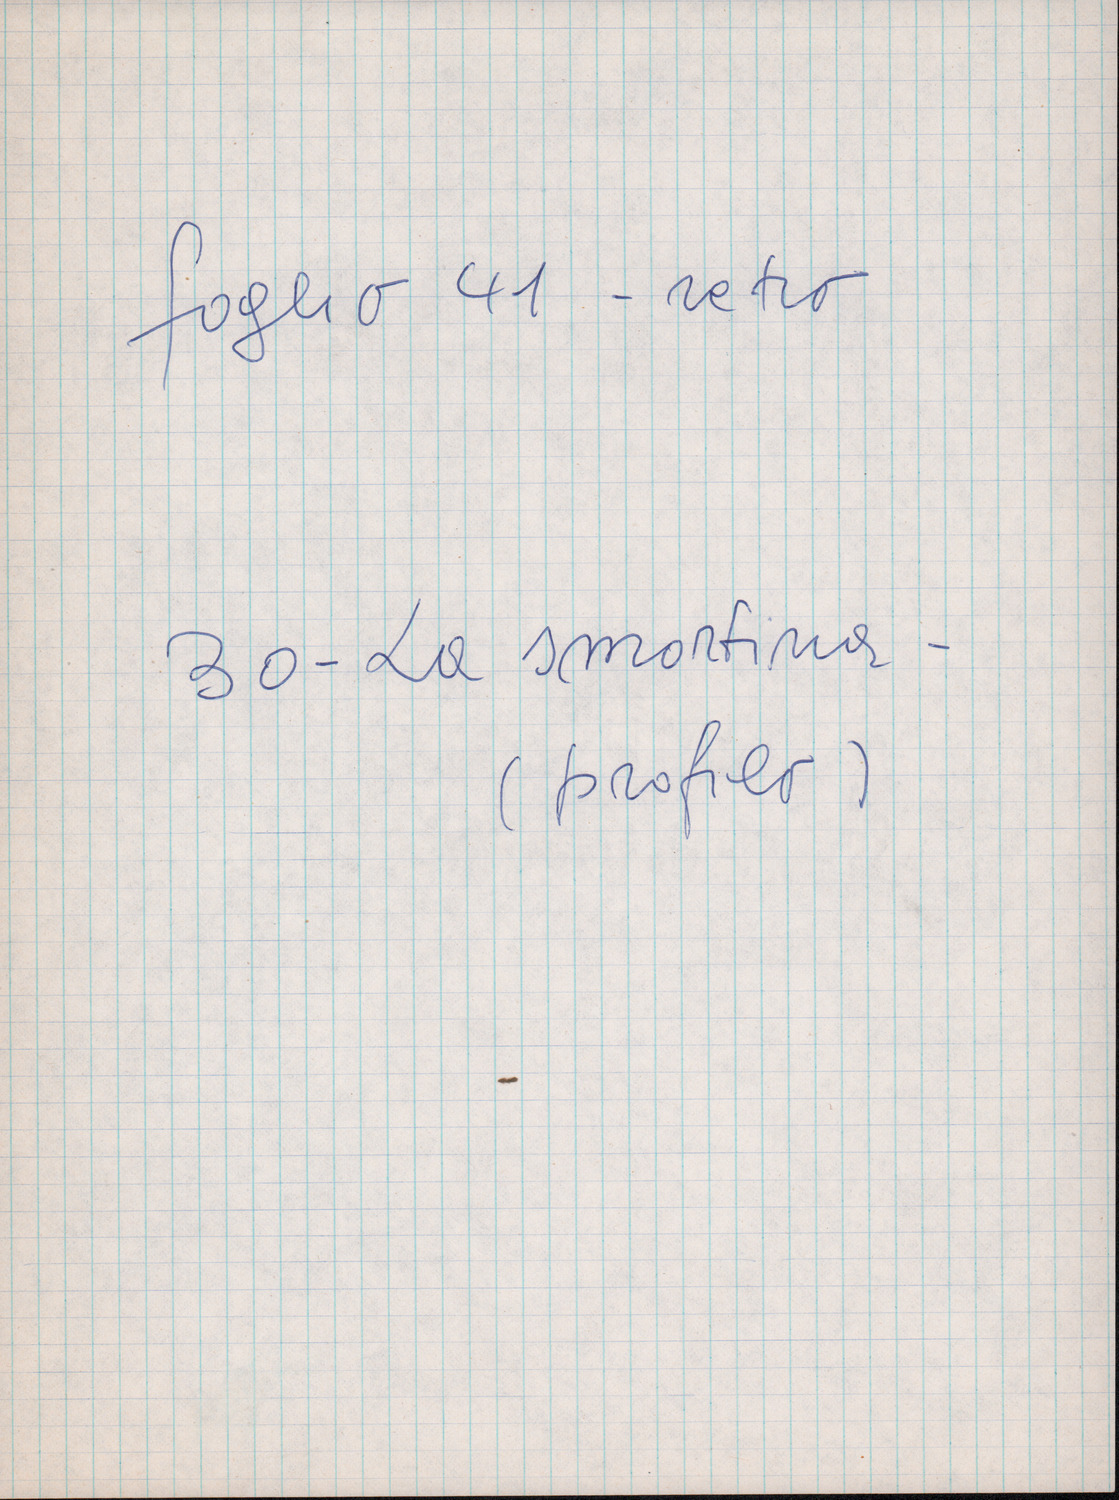 foglio 41 - retro
30 - La smortina -
(profilo)